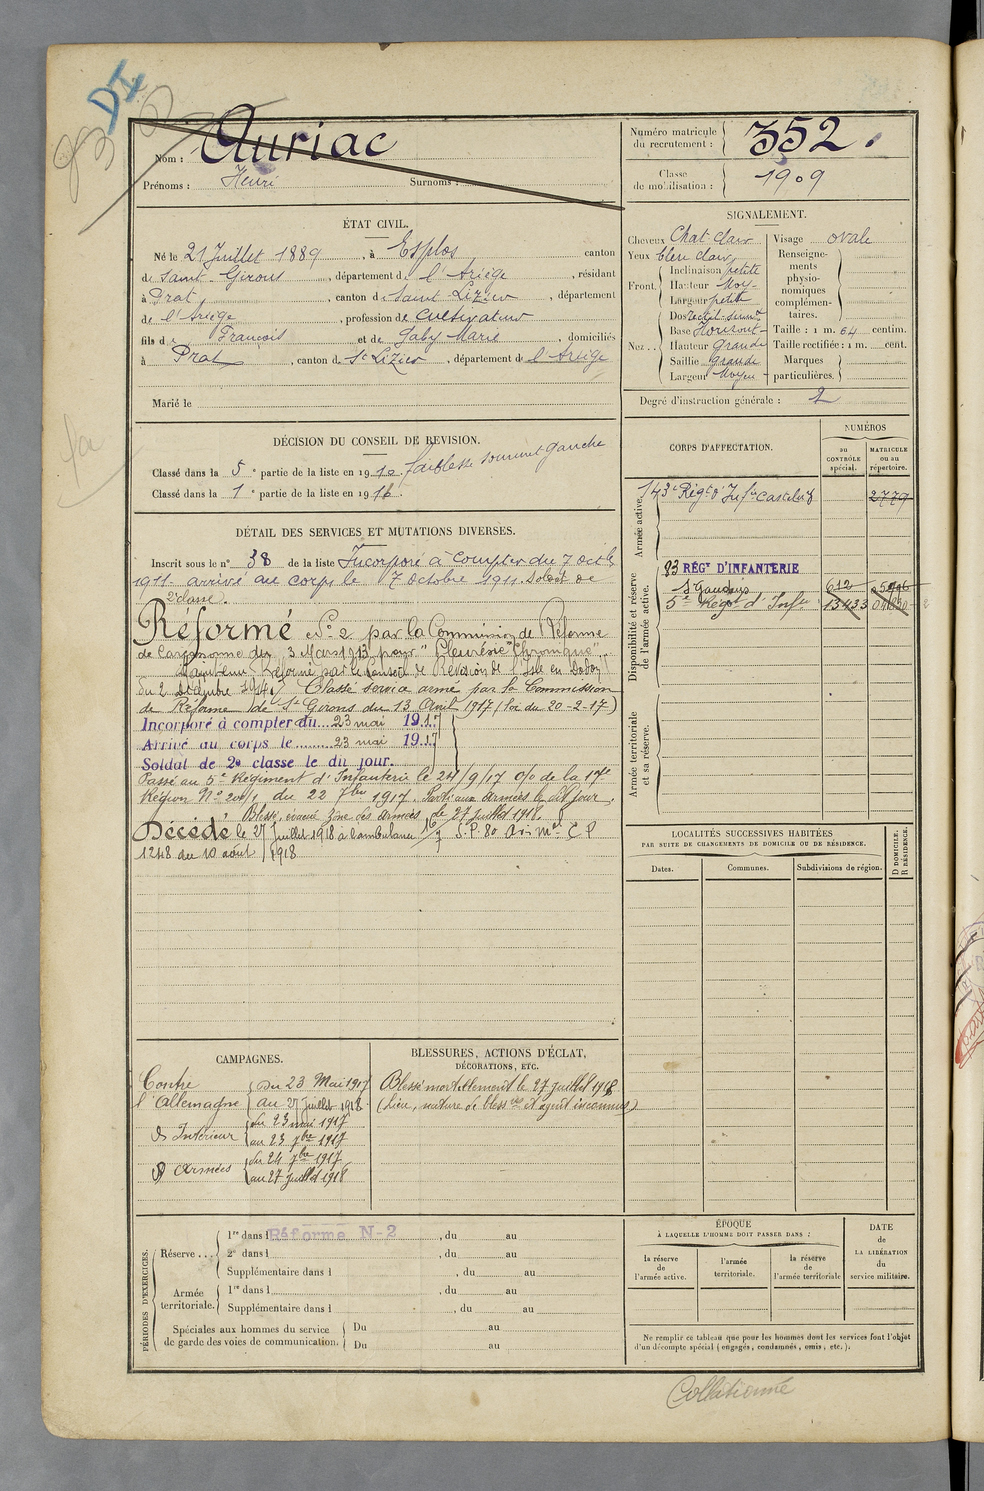 DI
Nom : Auriac
Prénoms : Henri Surnoms :
Numéro matricule du recrutement : 352.
Classe de mobilisation : 1909
ÉTAT CIVIL.
Né le 21 Juillet 1889, à Esplas canton
de Saint-Girons, département de l'Ariège, résidant
à Prat, canton de Saint Lizier, département
de l'Ariège, profession de Cultivateur
fils de François et de Gaby Marie, domiciliés
à Prat, canton de St Lizier, département de l'Ariège
Marié le
SIGNALEMENT.
Cheveux Chat clair
Yeux bleu clair
Front. Inclinaison petite
Hauteur Moy-
Largeur petite
Nez.. Dos rectil-sinu
Base Horizont-
Hauteur Grande
Saillie grande
Largeur Moyen
Visage ovale
Renseignements physionomiques complémentaires.
Taille : 1 m. 64 centim.
Taille rectifiée : 1 m. cent.
Marques particulières.
Degré d'instruction générale : 2
DÉCISION DU CONSEIL DE REVISION.
Classé dans la 5e partie de la liste en 1910. faiblesse sommet gauche
Classé dans la 1e partie de la liste en 1911.
DÉTAIL DES SERVICES ET MUTATIONS DIVERSES.
Inscrit sous le n° 38 de la liste Incorporé à compter du 7 octobre
1911. arrivé au corps le 7 octobre 1911. Soldat de
2e classe.
Réformé No 2 par la Commission de Réforme
de Carcassonne du 3 Mars 1913 pour "Pleurésie Chronique".
Maintenu Réformé par le Conseil de Revision de l'Isle en Dodon
du 2 Décembre 1914. Classé service armé par la Commission
de Réforme de St Girons du 13 Avril 1917 (loi du 20-2-17)
Incorporé à compter du 23 mai 1917
Arrivé au corps le 23 mai 1917
Soldat de 2e classe le dit jour.
Passé au 5e Régiment d'Infanterie le 24/9/17 o/o de la 17e
Région No 200/1 du 22 7bre 1917. Parti aux armées le dit jour.
Blessé, évacué zône des armées le 27 juillet 1918.
Décédé le 27 juillet 1918 à l'ambulance 16/7 S.P. 80
1248 du 10 août 1918
CORPS D'AFFECTATION.
NUMÉROS
AU CONTRÔLE spécial.
MATRICULE ou au répertoire.
Armée active.
143e Régt d'Infie Castelry 2779
Disponibilité et réserve de l'armée active.
83 RÉGT D'INFANTERIE
St Gaudens 612
5e Régt d'Infie 13433
Armée territoriale et sa réserve.
LOCALITÉS SUCCESSIVES HABITÉES
PAR SUITE DE CHANGEMENTS DE DOMICILE OU DE RÉSIDENCE.
Dates. Communes. Subdivisions de région.
D DOMICILE. R RÉSIDENCE.
CAMPAGNES.
Contre l'Allemagne du 23 Mai 1917
au 27 Juillet 1918.
Intérieur du 23 mai 1917
au 23 7bre 1917
Armées du 24 7bre 1917
au 27 juillet 1918
BLESSURES, ACTIONS D'ÉCLAT,
DÉCORATIONS, ETC.
Blessé mortellement le 27 juillet 1918
(lieu, nature de bless et agent inconnus)
PÉRIODES D'EXERCICES.
Réserve... 1re dans l Réforme N-2, du au
2e dans l, du au
Supplémentaire dans l, du au
Armée territoriale. 1re dans l, du au
Supplémentaire dans l, du au
Spéciales aux hommes du service de garde des voies de communication. Du au
Du au
ÉPOQUE
À LAQUELLE L'HOMME DOIT PASSER DANS :
la réserve de l'armée active.
l'armée territoriale.
la réserve de l'armée territoriale
DATE DE LA LIBÉRATION du service militaire.
Ne remplir ce tableau que pour les hommes dont les services font l'objet
d'un décompte spécial (engagés, condamnés, omis, etc.).
Collationné